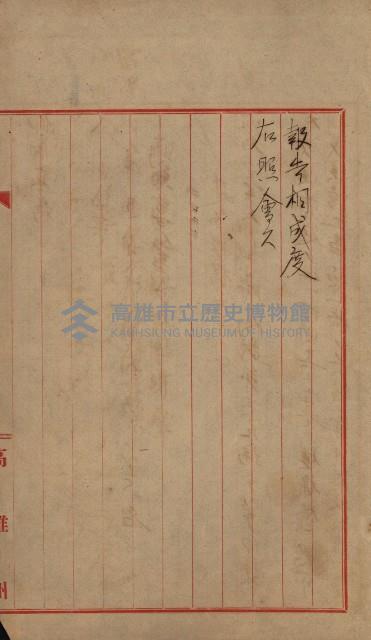 報告相成度
右照會ス
高雄市立歷史博物館
KAOHSIUNG MUSEUM OF HISTORY
高雄州